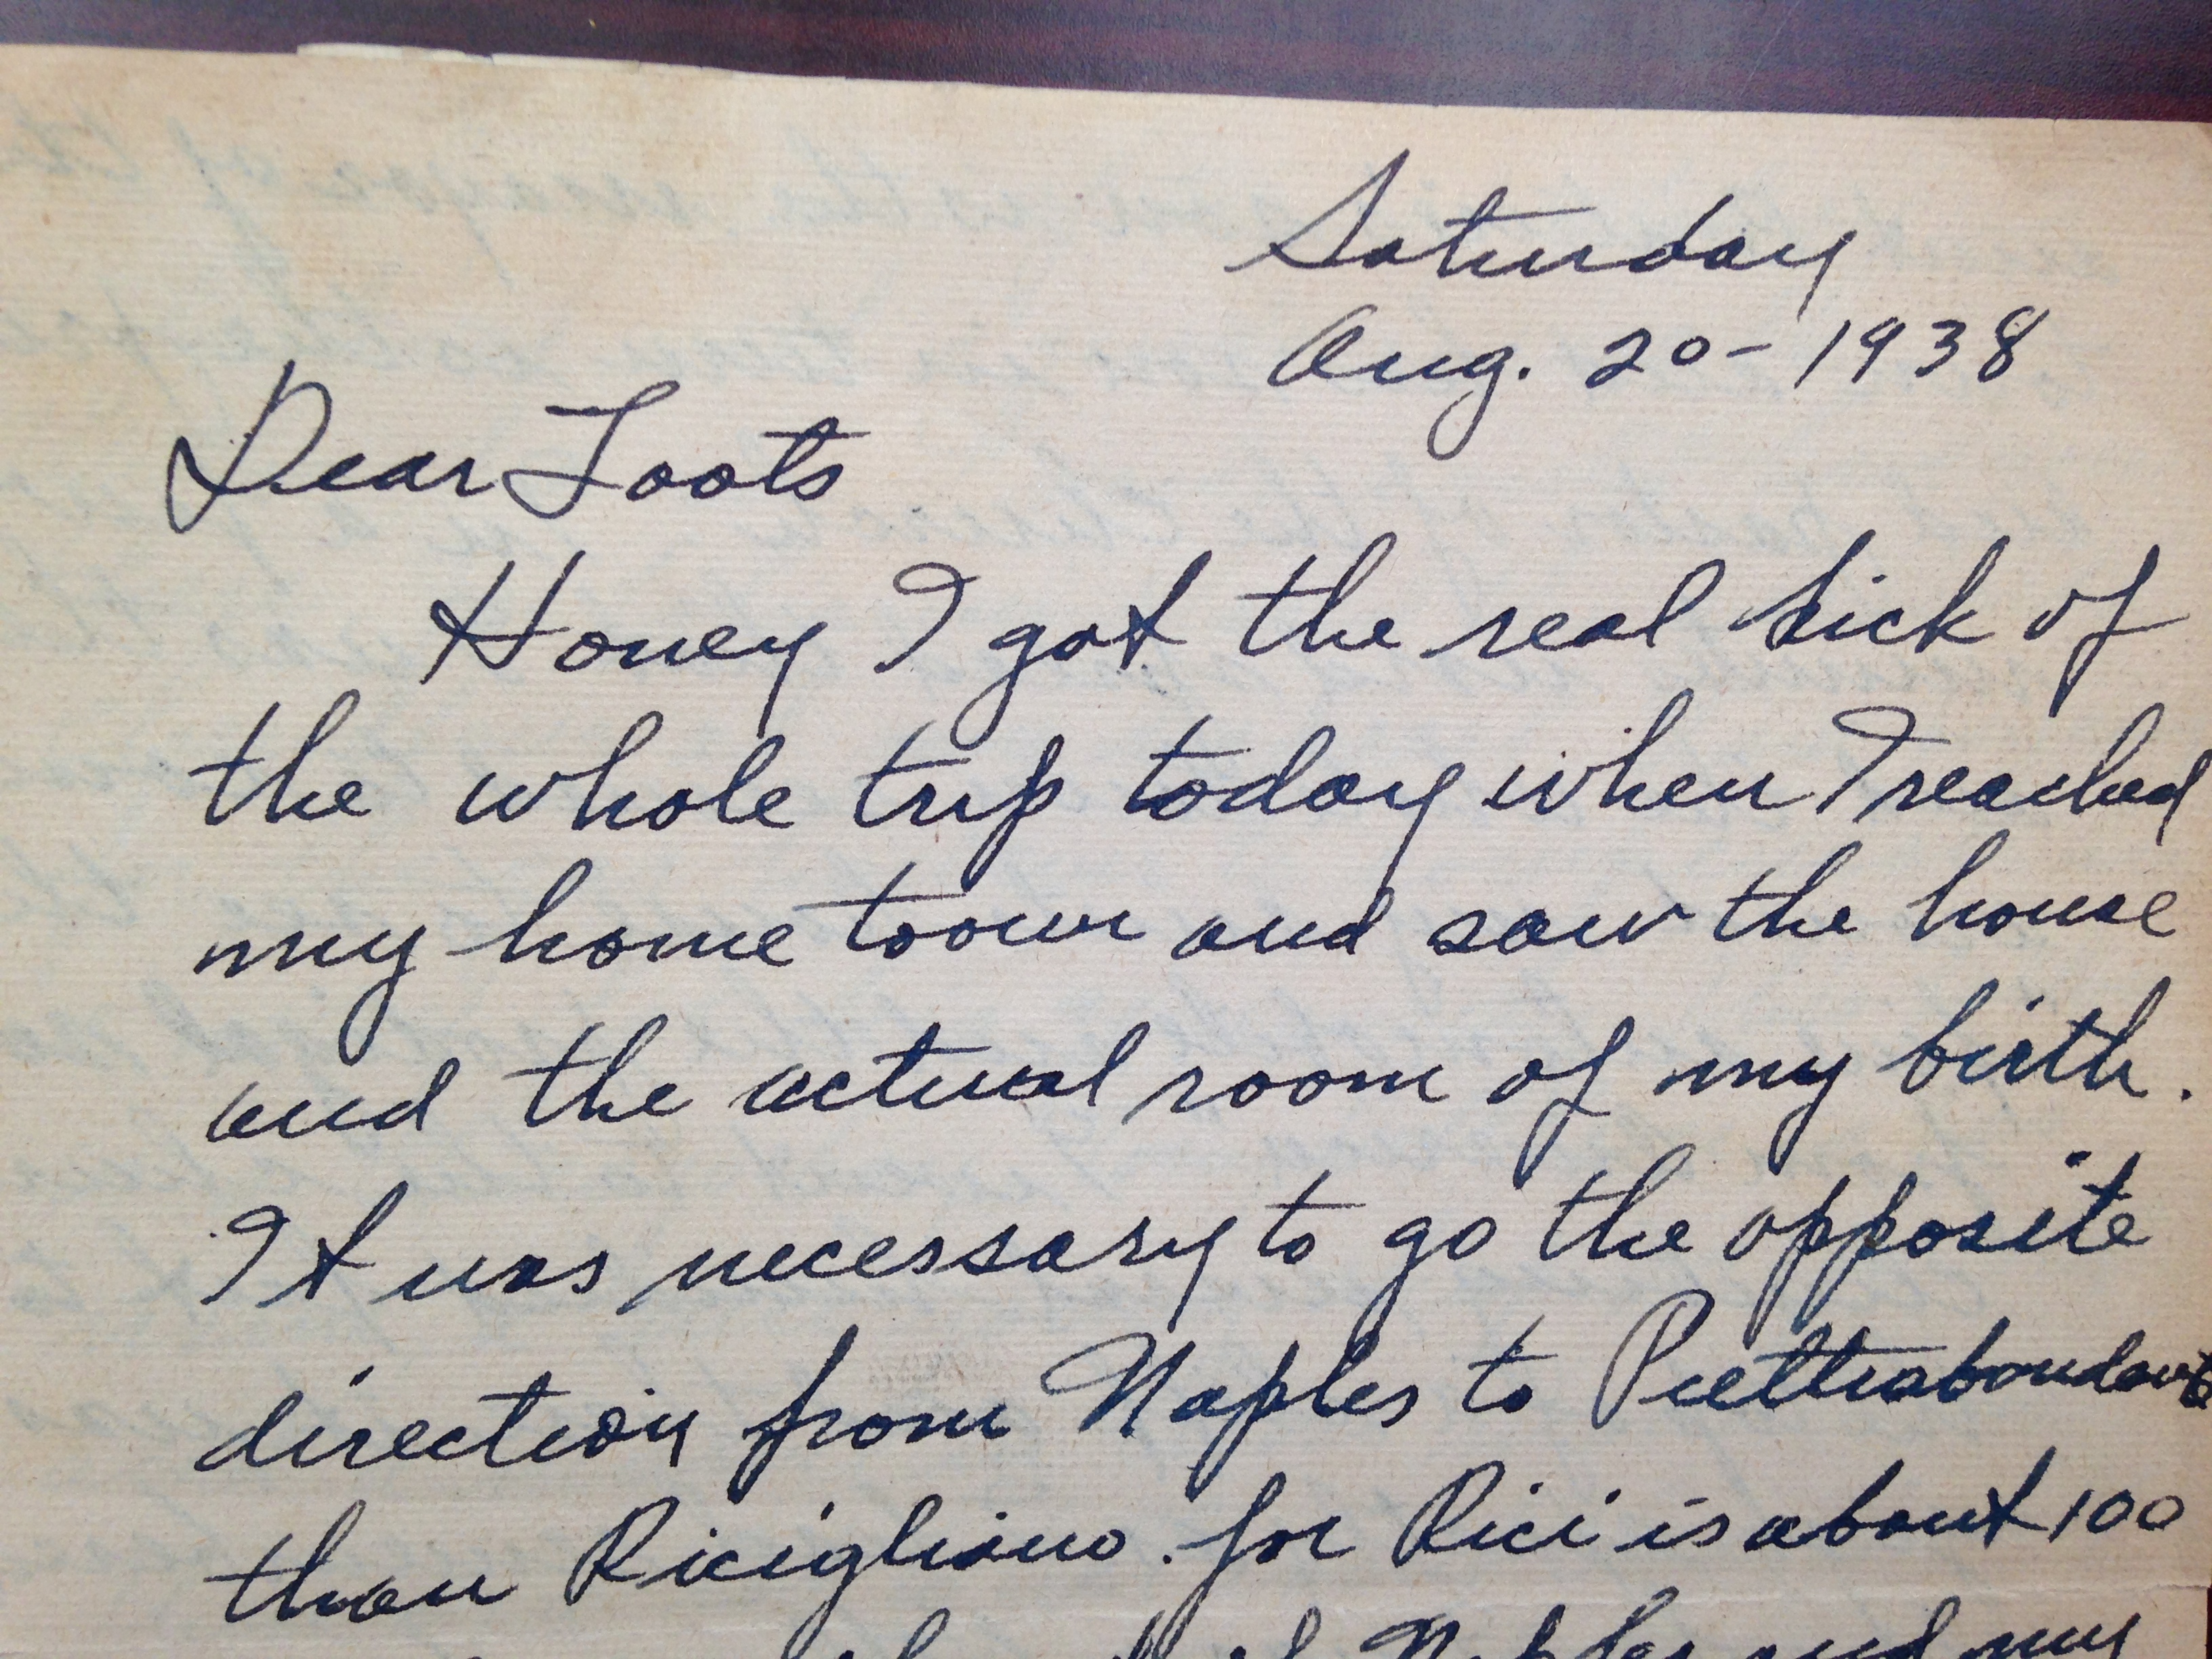 Saturday
Aug. 20 - 1938
Dear Toots
Honey I got the real kick of
the whole trip today when I reached
my home town and saw the house
and the actual room of my birth.
It was necessary to go the opposite
direction from Naples to Piettrabondante
than Ricigliano. for Rici is about 100
Naples and my